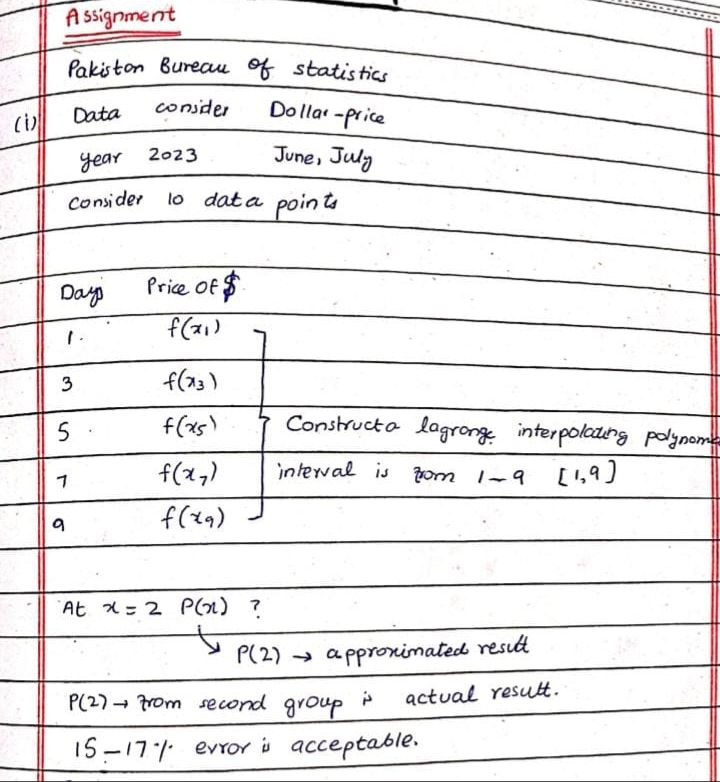 Assignment
Pakistan Bureau of statistics
(i) Data consider Dollar-price
year 2023 June, July
consider 10 data points
Days Price of $
1. f(x₁)
3 f(x₃)
5. f(x₅) Construct a lagrange interpolating polynomia
7 f(x₇) interval is from 1-9 [1,9]
9 f(x₉)
At x=2 P(x) ?
↳ P(2) → approximated result
P(2) → from second group is actual result.
15-17% error is acceptable.